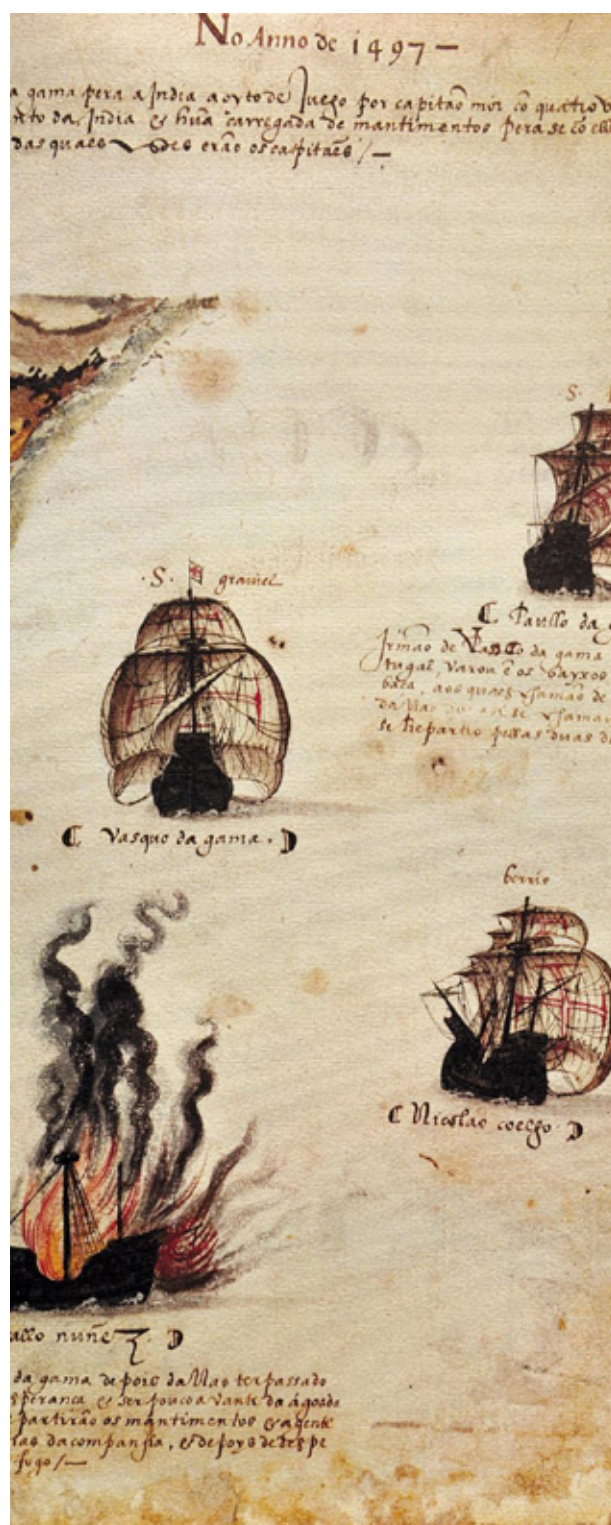 No Anno de 1497 —
a gama pera a India a oyto de Juego por capitão mór cõ quatro
da India & hũa carregada de mantimentos pera se cõ
das quaes erão os capitaẽs /—
S.
.S. grauiel
( Paullo da
Irmão de Vasco da gama
tugal, varou ẽ os bayxos
aos quaes de
da Nao se
se pellas duas
( Vasquo da gama . )
berrio
( Nicolao coelho . )
allo nuñez . )
da gama depois da Nao ter passado
sperança & ser pouco avante da agoada
partirão os mantimentos & a gente
da companhia, & depoys de despe
fogo /—